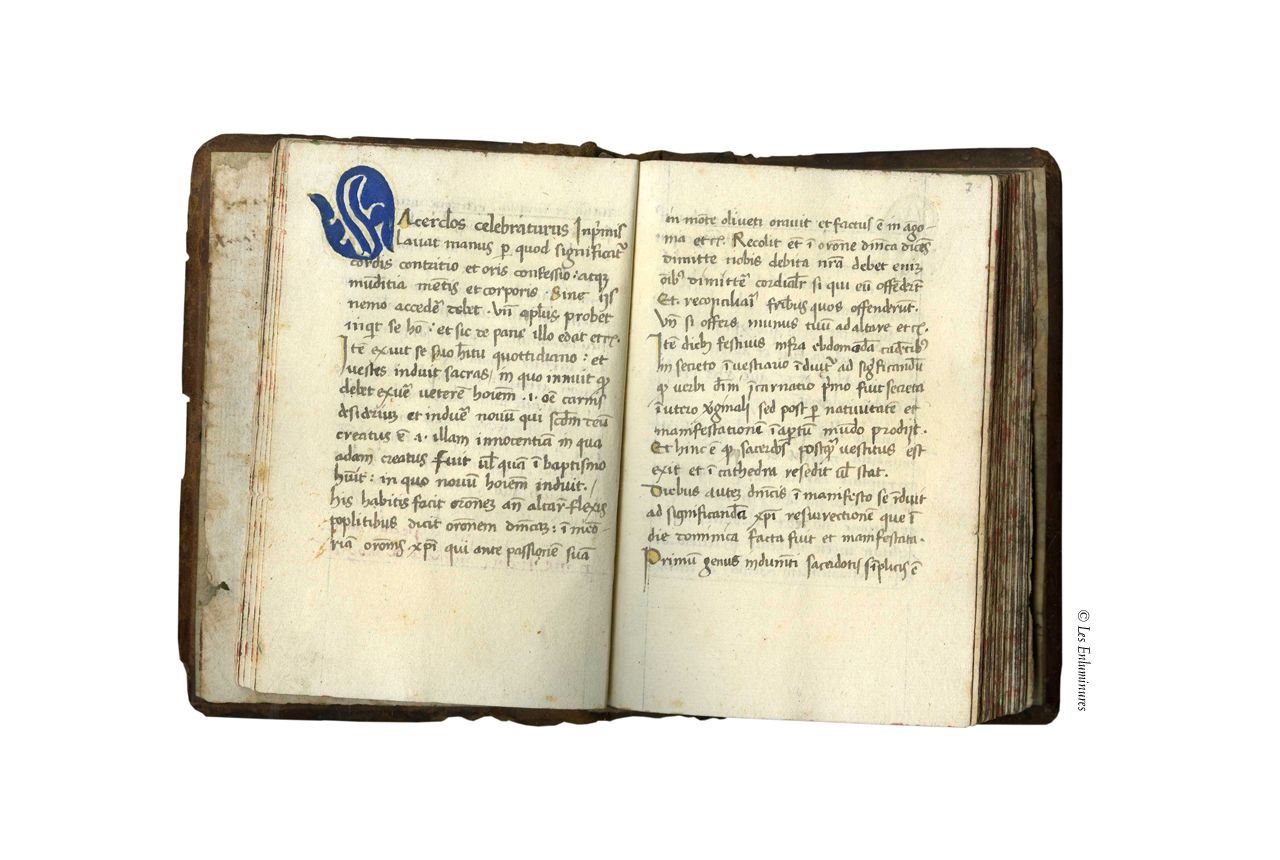 Sacerdos celebraturus Inpͥmis
Lauat manus ꝑ quod significat᷑
cordis contritio et oris confessio : atqꝫ
mūditia mētis et corporis . Sine hͥs
nemo accedē debet . Vn̄ apl̄us probet
inqͥt se hō : et sic de pane illo edat etcꝫ.
Itē exuit se suo hītu quottidiano : et
vestes induit sacras / in quo innuit ꝙ
debet exuē veterē hoīem . i . oē carnis
desideriuꝫ et induē nouū qui scd̄m deū
creatus ē . i . illam innocentiā in qua
adam creatus fuit vl̄ quā ī baptismo
hūit : in quo nouū hoīem induit . /
his habitis facit orōneꝫ an̄ altar̄ flexis
poplitibus dicit orōnem dn̄icaꝫ : ī mēo-
riā orōnis xp̄i qui ante passionē suā
2
in mōte oliueti orauit et factus ē in ago-
nia etcꝫ. Recolit et ī orōne dn̄ica dicēs
dimitte nobis debita nr̄a debet enīꝫ
oībꝰ dimittē cordialr̄ si qui eū offender̄t
Et reconciliaī fr̄ibus quos offenderūt .
Vn̄ si offers munus tuū ad altare etcꝫ.
Itē dieb̄ festiuis infra ebdomadā cadētibꝰ
In secreto ī vestiario īduit᷑ ad significandū
ꝙ verbi diuī īcarnatio pͥmo fuit secreta
ī vtero virginali sed post ꝑ natiuitatē et
manifestationē ī aꝑtū mūdo prodijt .
Et hinc ē ꝙ sacerdos postqͣꝫ vestitus est
exit et ī cathedra resedit vl̄ stat .
Diebus auteꝫ dn̄icis ī manifesto se īduit
ad significandā xp̄i resurrectionē que ī
die dominica facta fuit et manifestata .
Primū genus indumēti sacerdotis sīplicis ē
© Les Enluminures